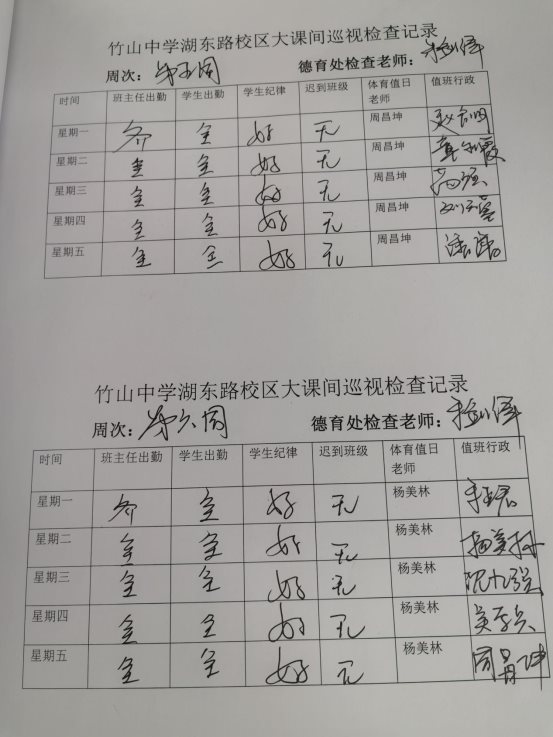 竹山中学湖东路校区大课间巡视检查记录
周次：第五周 德育处检查老师：
时间 班主任出勤 学生出勤 学生纪律 迟到班级 体育值日老师 值班行政
星期一 齐 全 好 无 周昌坤
星期二 全 全 好 无 周昌坤
星期三 全 全 好 无 周昌坤
星期四 全 全 好 无 周昌坤
星期五 全 全 好 无 周昌坤
竹山中学湖东路校区大课间巡视检查记录
周次：第六周 德育处检查老师：
时间 班主任出勤 学生出勤 学生纪律 迟到班级 体育值日老师 值班行政
星期一 齐 全 好 无 杨美林
星期二 全 全 好 无 杨美林 杨美林
星期三 全 全 好 无 杨美林
星期四 全 全 好 无 杨美林
星期五 全 全 好 无 杨美林 周昌坤